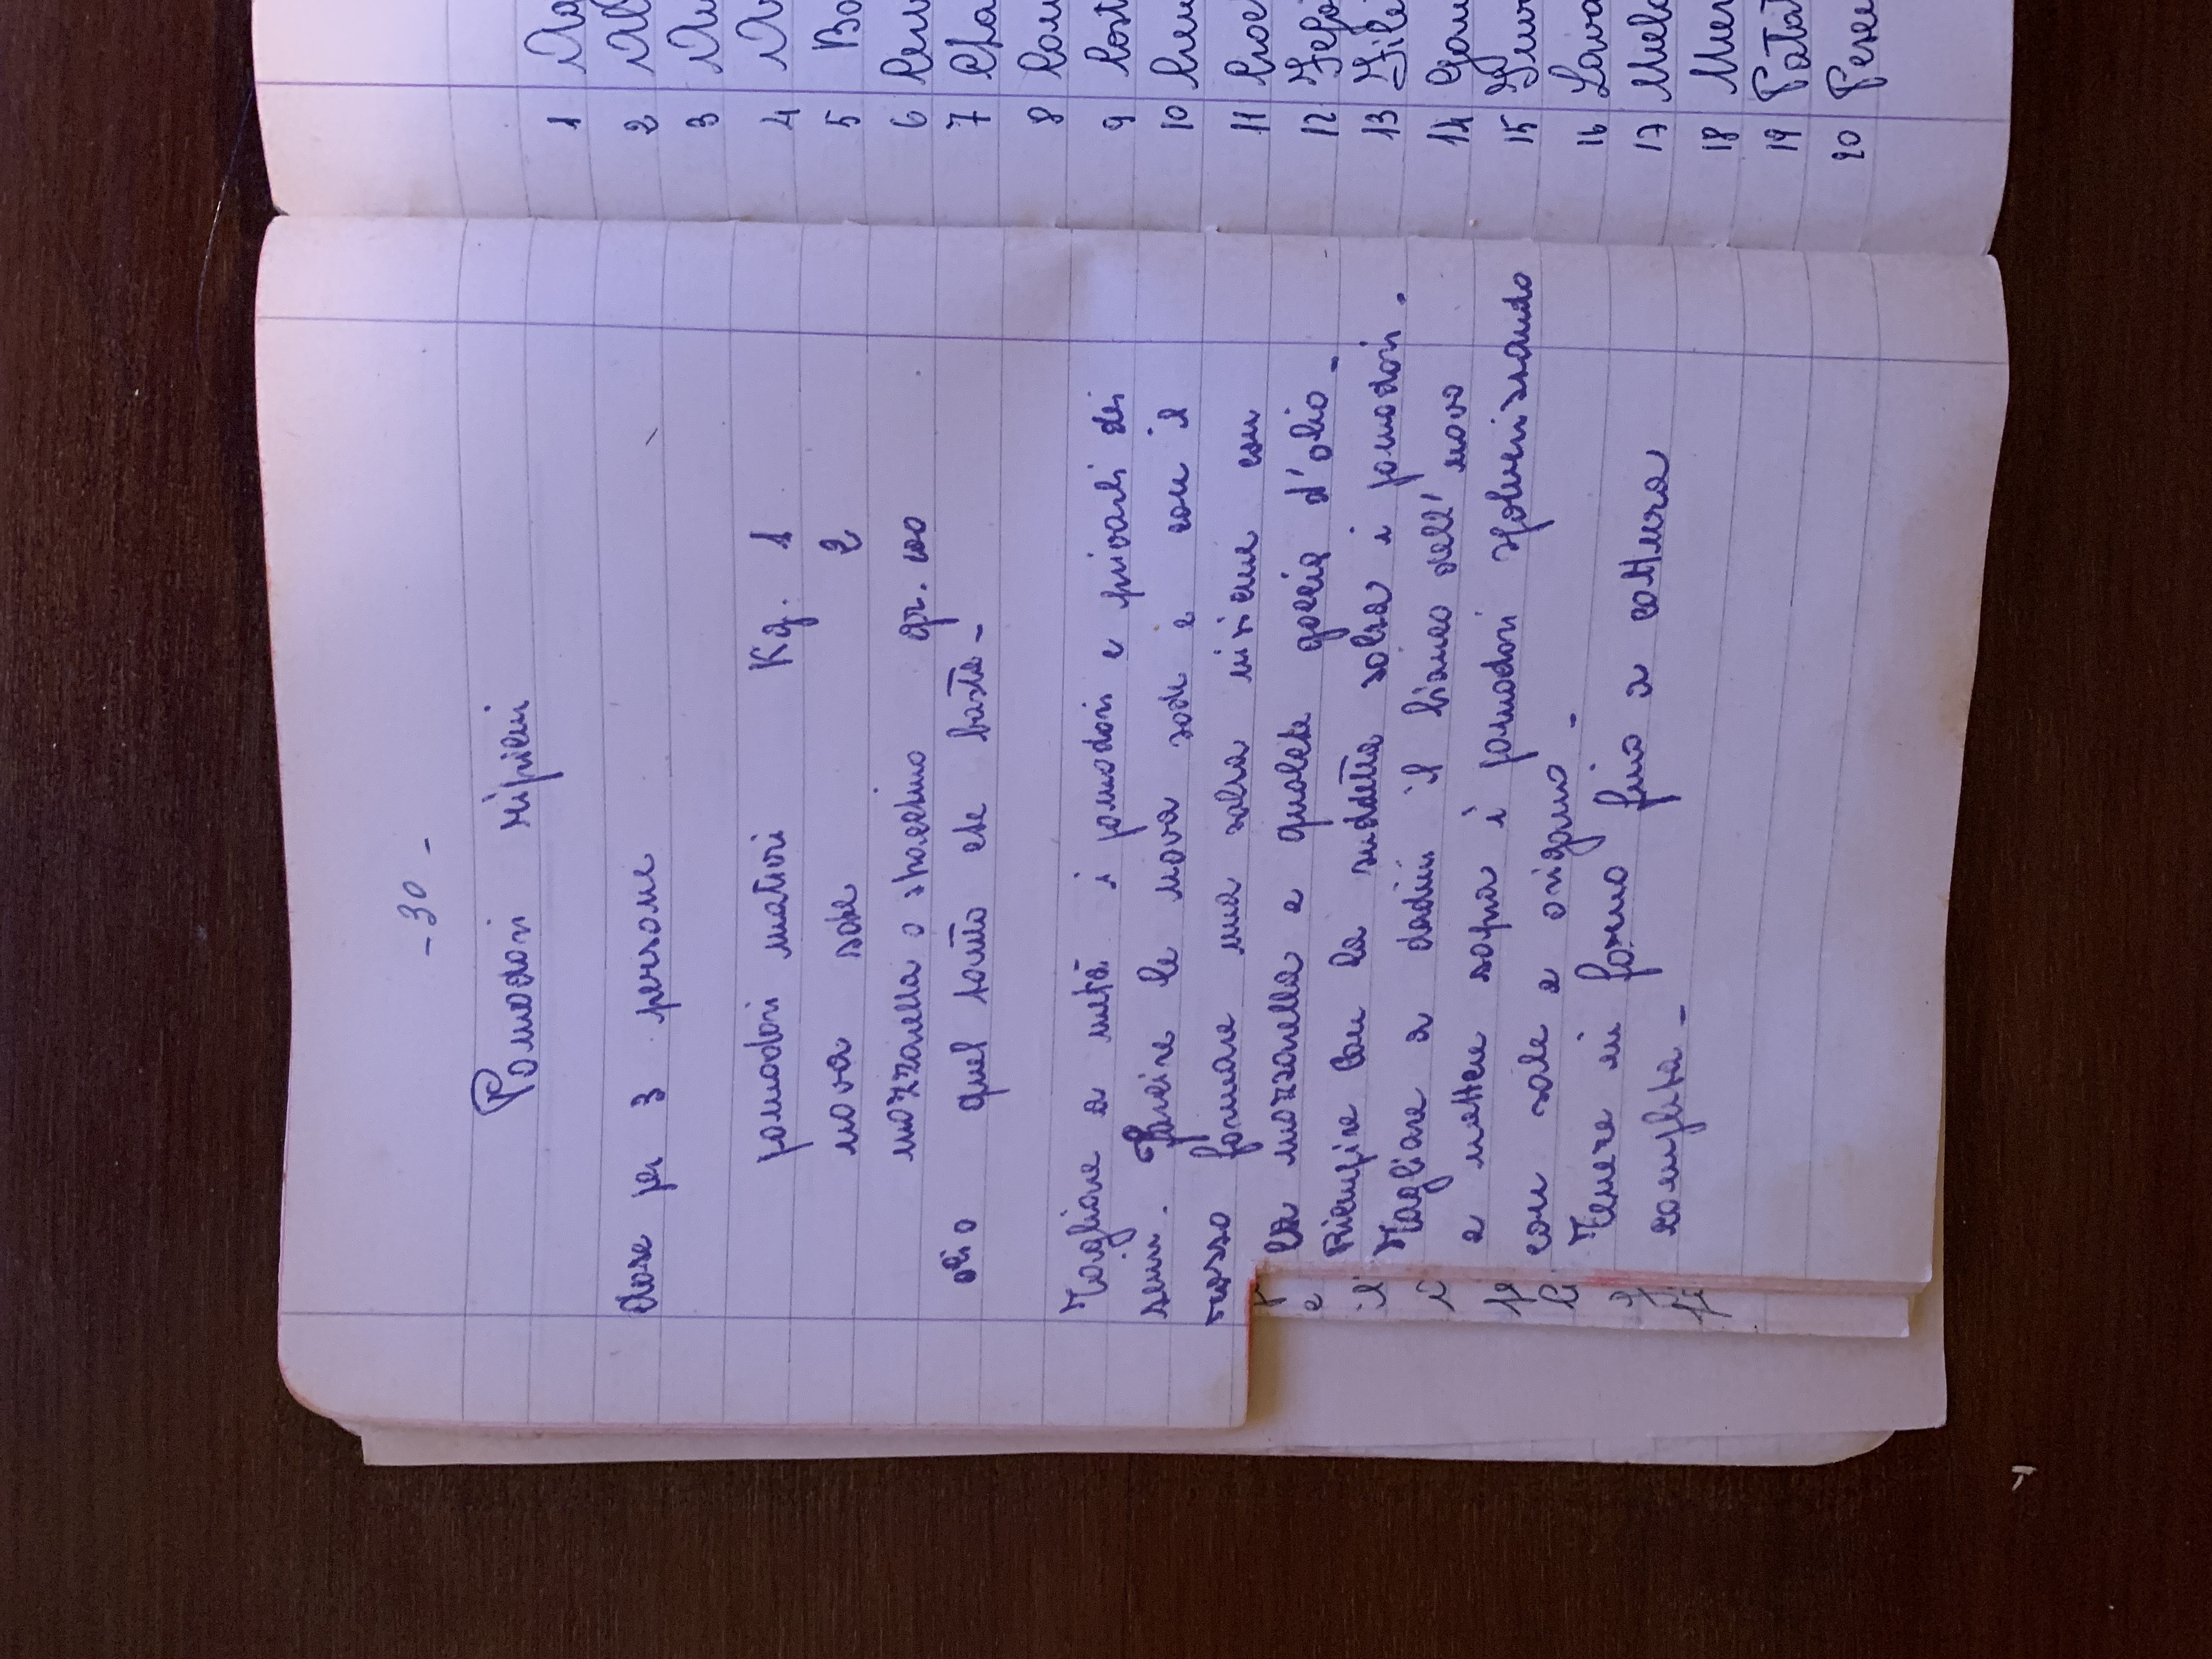 - 30 -
Pomodori ripieni
dose per 3 persone
pomodori maturi Kg. 1
uova sode 2
mozzarella o stracchino gr. 100
olio quel tanto che basta -
Tagliare a metà i pomodori e privarli dei
semi. le uova sode e con il
rosso formare una salsa insieme con
la mozzarella e qualche goccia d'olio -
Riempire con la suddetta salsa i pomodori -
Tagliare a dadini il bianco dell'uovo
e mettere sopra i pomodori spolverizzando
con sale e origano -
Tenere in forno fino a cottura
completa -
1
2
3
4
5
6
7
8
9
10
11
12
13
14
15
16
17
18
19
20